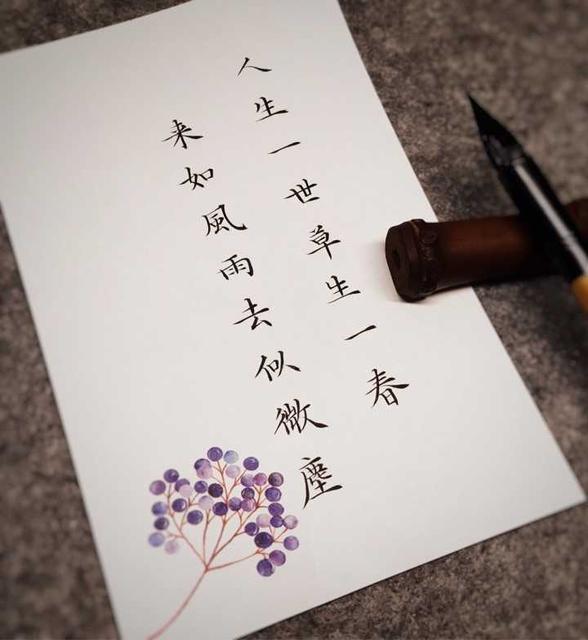 人生一世草生一春
来如風雨去似微塵